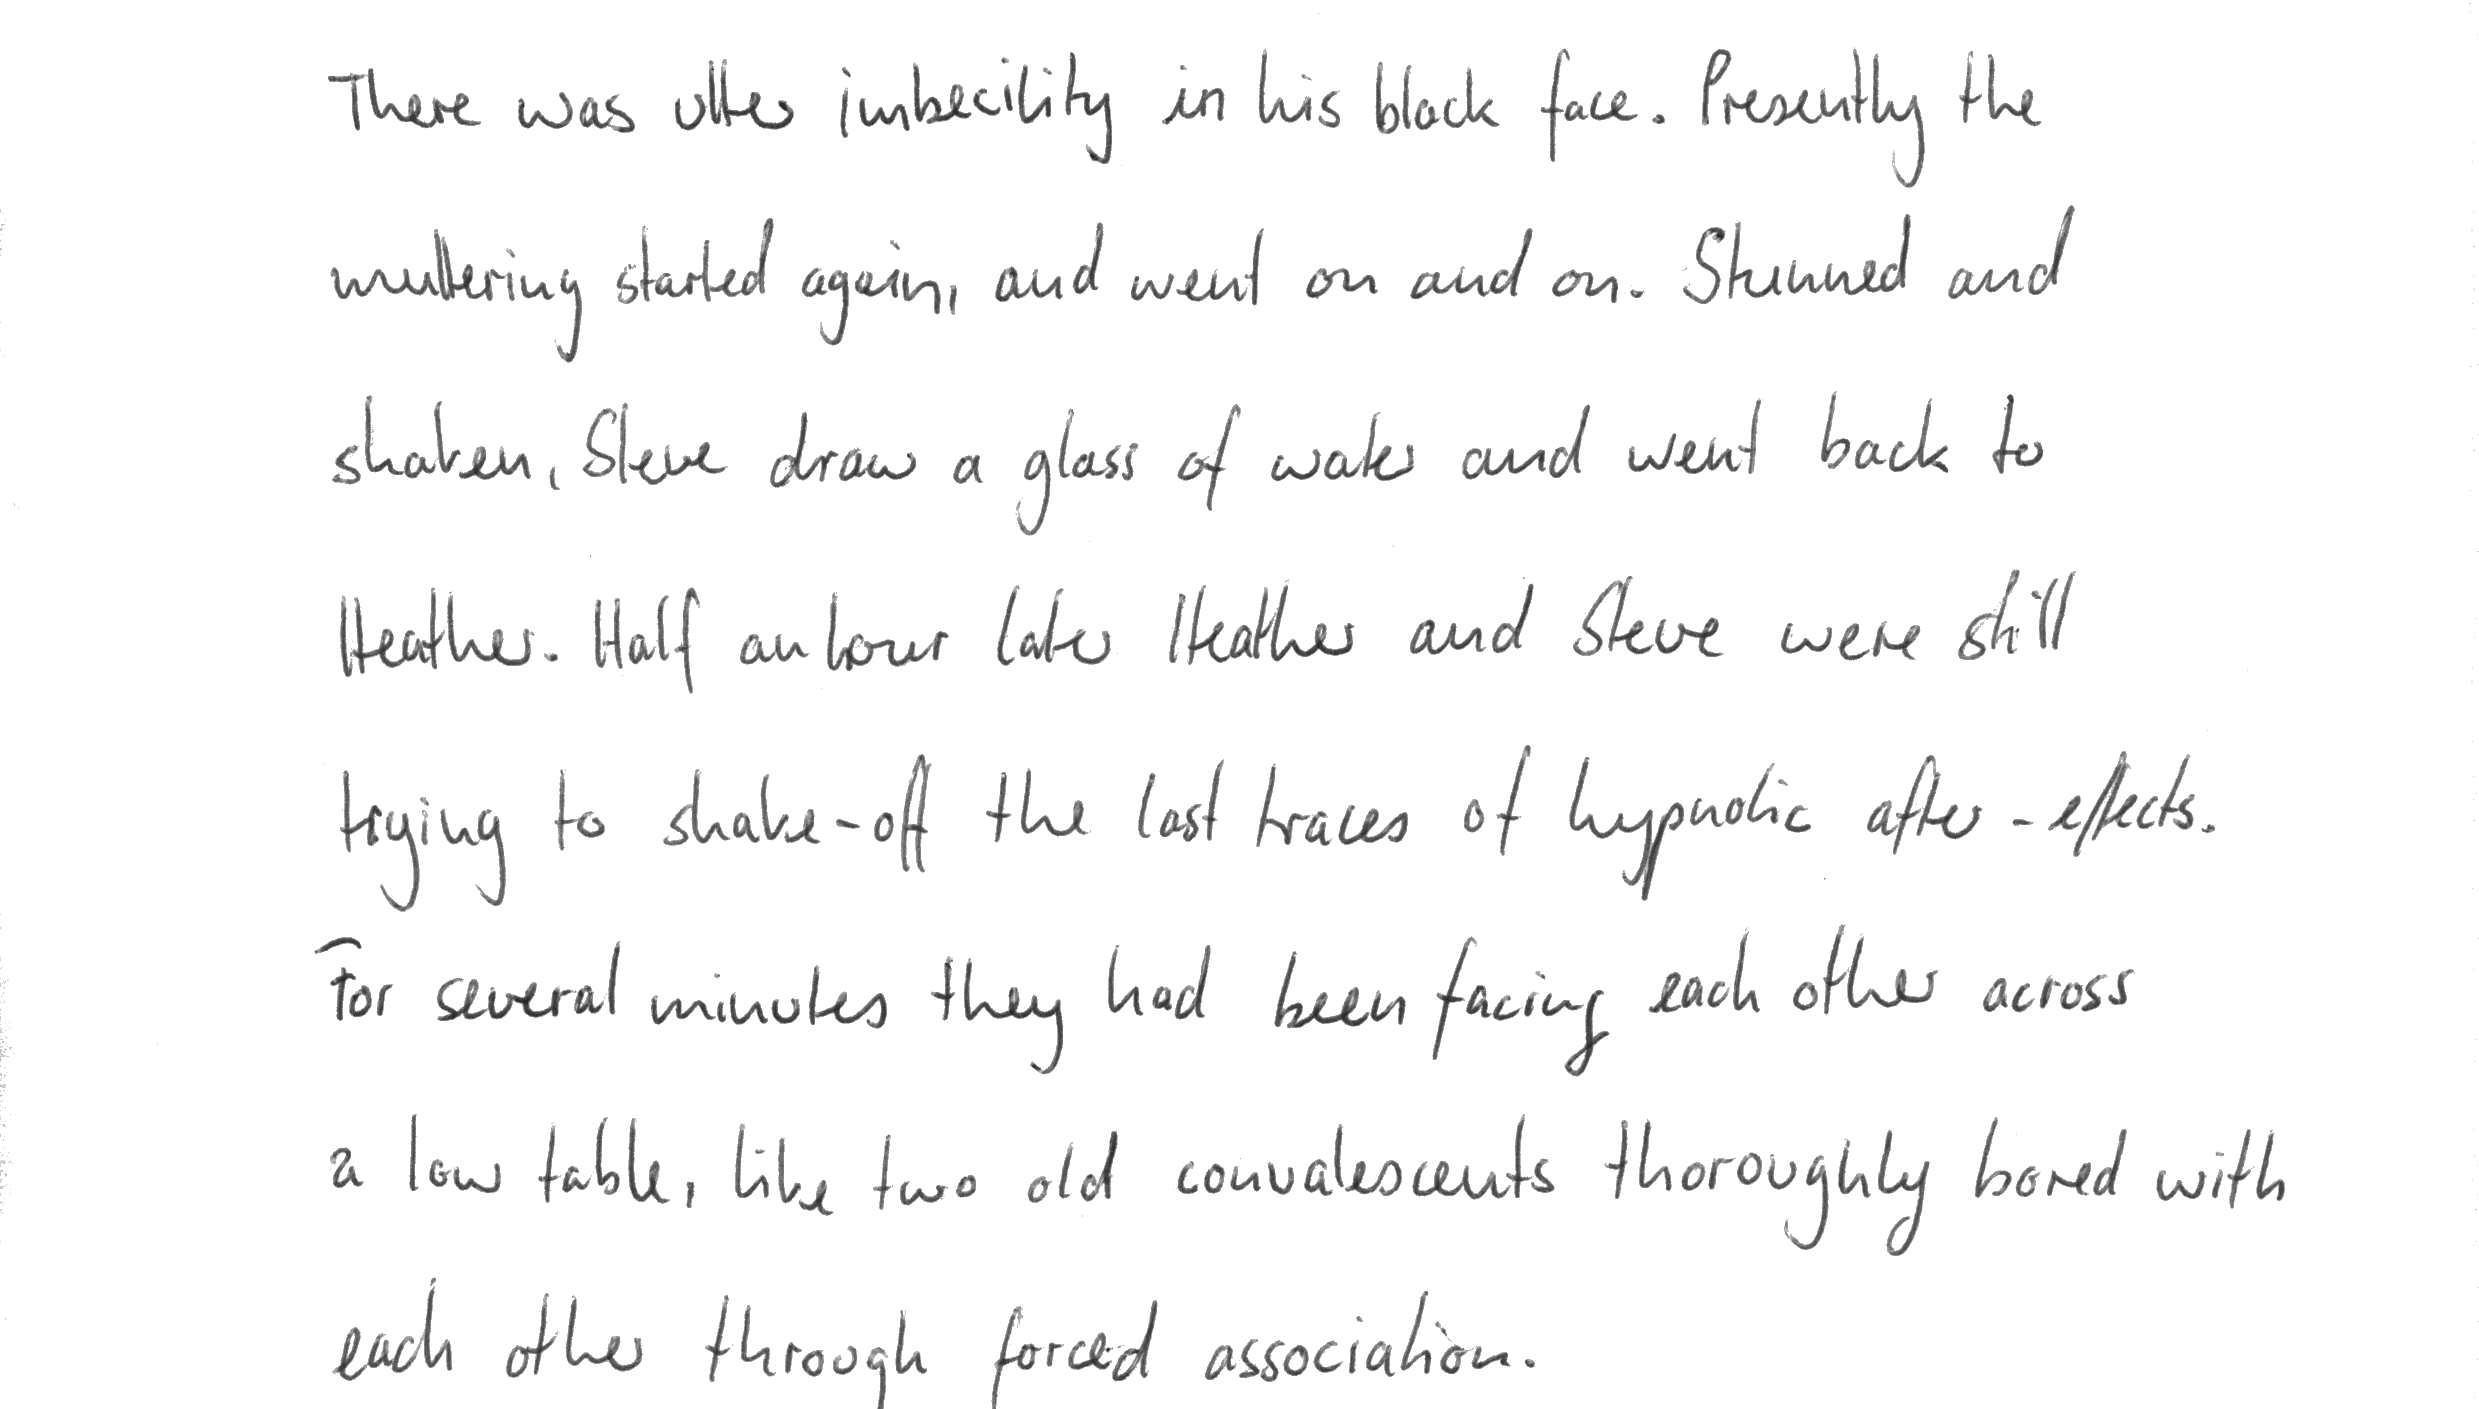 There was utter imbecility in his black face. Presently the
muttering started again, and went on and on. Stunned and
shaken, Steve draw a glass of water and went back to
Heather. Half an hour later Heather and Steve were still
trying to shake-off the last traces of hypnotic after-effects.
For several minutes they had been facing each other across
a low table, like two old convalescents thoroughly bored with
each other through forced association.